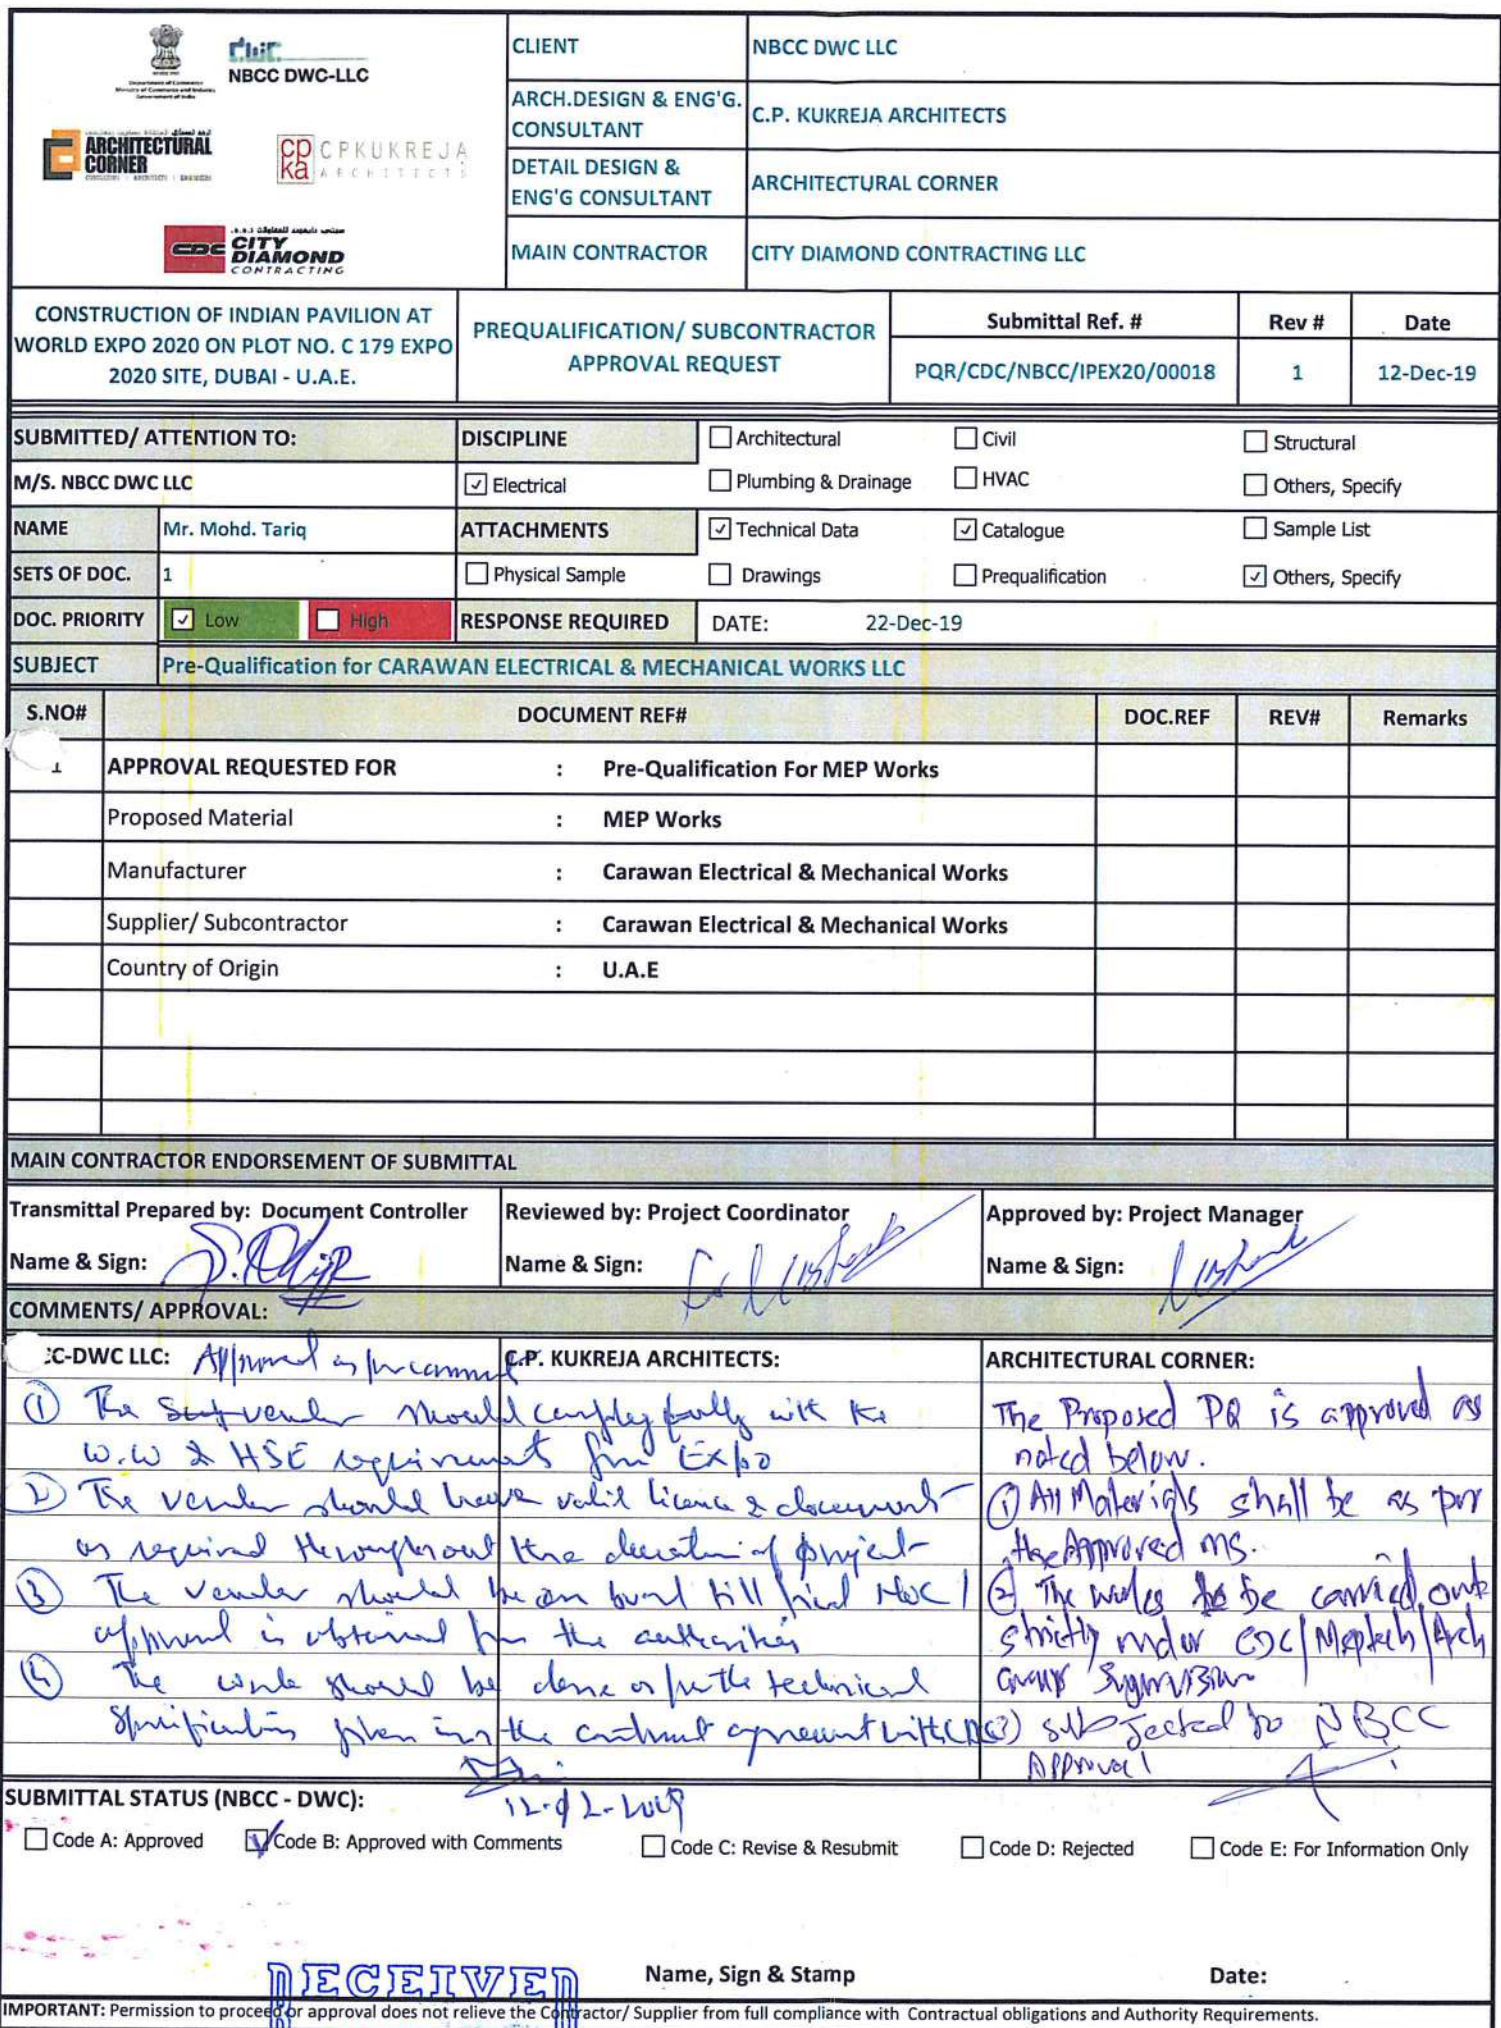 NBCC DWC-LLC
Department of Commerce
Ministry of Commerce and Industry
Government of India
ARCHITECTURAL
CORNER
cp
ka
CPKUKREJA
ARCHITECTS
CDC
CITY
DIAMOND
CONTRACTING
CLIENT NBCC DWC LLC
ARCH.DESIGN & ENG'G. CONSULTANT C.P. KUKREJA ARCHITECTS
DETAIL DESIGN & ENG'G CONSULTANT ARCHITECTURAL CORNER
MAIN CONTRACTOR CITY DIAMOND CONTRACTING LLC
CONSTRUCTION OF INDIAN PAVILION AT
WORLD EXPO 2020 ON PLOT NO. C 179 EXPO
2020 SITE, DUBAI - U.A.E.
PREQUALIFICATION/ SUBCONTRACTOR
APPROVAL REQUEST
Submittal Ref. # Rev # Date
PQR/CDC/NBCC/IPEX20/00018 1 12-Dec-19
SUBMITTED/ ATTENTION TO: DISCIPLINE Architectural Civil Structural
M/S. NBCC DWC LLC ✓ Electrical Plumbing & Drainage HVAC Others, Specify
NAME Mr. Mohd. Tariq ATTACHMENTS ✓ Technical Data ✓ Catalogue Sample List
SETS OF DOC. 1 Physical Sample Drawings Prequalification ✓ Others, Specify
DOC. PRIORITY ✓ Low High RESPONSE REQUIRED DATE: 22-Dec-19
SUBJECT Pre-Qualification for CARAWAN ELECTRICAL & MECHANICAL WORKS LLC
S.NO# DOCUMENT REF# DOC.REF REV# Remarks
1 APPROVAL REQUESTED FOR : Pre-Qualification For MEP Works
Proposed Material : MEP Works
Manufacturer : Carawan Electrical & Mechanical Works
Supplier/ Subcontractor : Carawan Electrical & Mechanical Works
Country of Origin : U.A.E
MAIN CONTRACTOR ENDORSEMENT OF SUBMITTAL
Transmittal Prepared by: Document Controller
Name & Sign:
Reviewed by: Project Coordinator
Name & Sign:
Approved by: Project Manager
Name & Sign:
COMMENTS/ APPROVAL:
C-DWC LLC: Approved as per comment
C.P. KUKREJA ARCHITECTS:
① The vender should comply fully with the
W.W & HSE requirements from Expo
② The vender should have valid licence & document
as required throughout the duration of project
③ The vender should be on board till final NOC /
approval is obtained from the authorities
④ The work should be done as per the technical
specification given in the contract agreement with
ARCHITECTURAL CORNER:
The Proposed PQ is approved as
noted below.
① All Materials shall be as per
the Approved MS.
② The works to be carried out
strictly under CDC/Meptech/Arch
Supervision
3) subjected to NBCC
Approval
SUBMITTAL STATUS (NBCC - DWC):
Code A: Approved ✓ Code B: Approved with Comments Code C: Revise & Resubmit Code D: Rejected Code E: For Information Only
RECEIVED
Name, Sign & Stamp Date:
IMPORTANT: Permission to proceed or approval does not relieve the Contractor/ Supplier from full compliance with Contractual obligations and Authority Requirements.